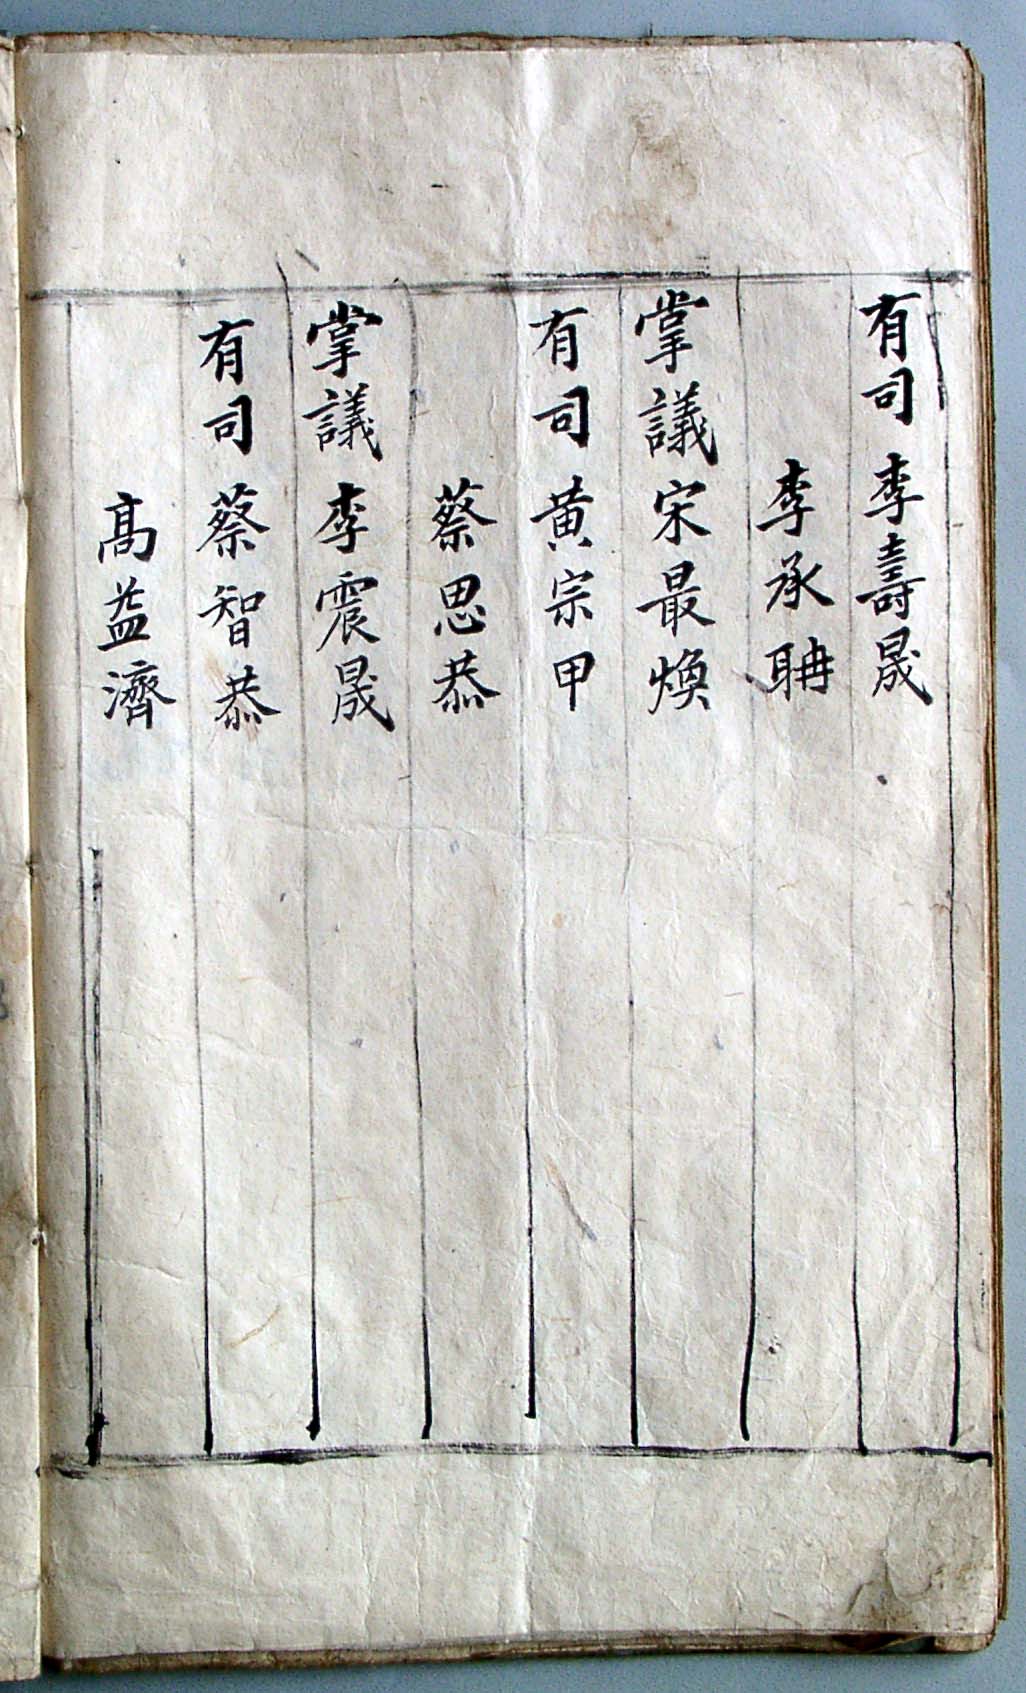 有司 李壽晟
李承聃
掌議 宋最煥
有司 黃宗甲
蔡思恭
掌議 李震晟
有司 蔡智恭
高益濟